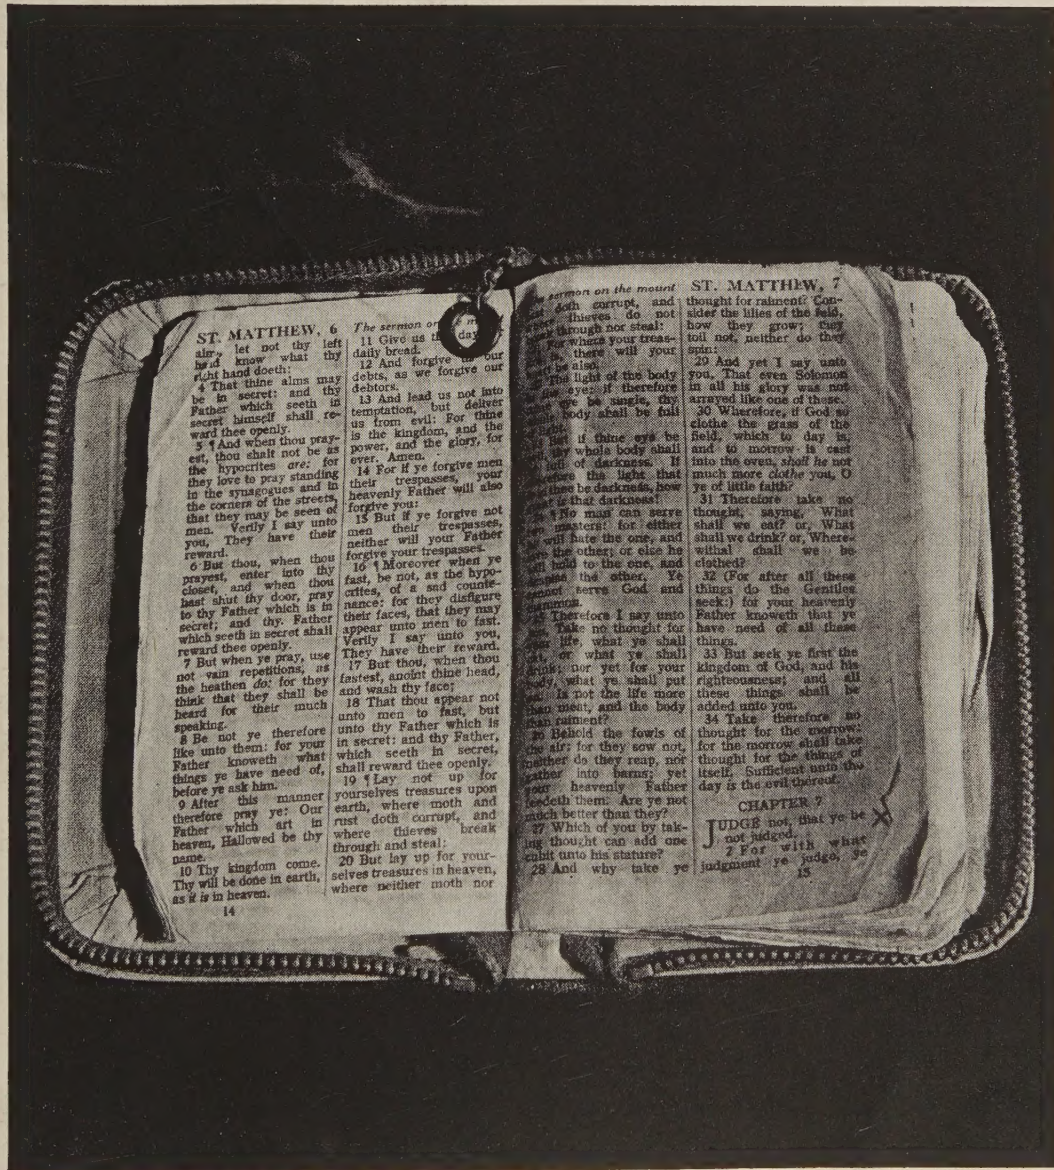 ST. MATTHEW, 6
alms, let not thy left
hand know what thy
right hand doeth:
4 That thine alms may
be in secret: and thy
Father which seeth in
secret himself shall re-
ward thee openly.
5 ¶ And when thou pray-
est, thou shalt not be as
the hypocrites are: for
they love to pray standing
in the synagogues and in
the corners of the streets,
that they may be seen of
men. Verily I say unto
you, They have their
reward.
6 But thou, when thou
prayest, enter into thy
closet, and when thou
hast shut thy door, pray
to thy Father which is in
secret; and thy Father
which seeth in secret shall
reward thee openly.
7 But when ye pray, use
not vain repetitions, as
the heathen do: for they
think that they shall be
heard for their much
speaking.
8 Be not ye therefore
like unto them: for your
Father knoweth what
things ye have need of,
before ye ask him.
9 After this manner
therefore pray ye: Our
Father which art in
heaven, Hallowed be thy
name.
10 Thy kingdom come.
Thy will be done in earth,
as it is in heaven.
14
The sermon on
11 Give us day
daily bread.
12 And forgive our
debts, as we forgive our
debtors.
13 And lead us not into
temptation, but deliver
us from evil: For thine
is the kingdom, and the
power, and the glory, for
ever. Amen.
14 For if ye forgive men
their trespasses, your
heavenly Father will also
forgive you:
15 But if ye forgive not
men their trespasses,
neither will your Father
forgive your trespasses.
16 ¶ Moreover when ye
fast, be not, as the hypo-
crites, of a sad counte-
nance: for they disfigure
their faces, that they may
appear unto men to fast.
Verily I say unto you,
They have their reward.
17 But thou, when thou
fastest, anoint thine head,
and wash thy face;
18 That thou appear not
unto men to fast, but
unto thy Father which is
in secret: and thy Father,
which seeth in secret,
shall reward thee openly.
19 ¶ Lay not up for
yourselves treasures upon
earth, where moth and
rust doth corrupt, and
where thieves break
through and steal:
20 But lay up for your-
selves treasures in heaven,
where neither moth nor
sermon on the mount
doth corrupt, and
thieves do not
through nor steal:
For where your treas-
there will your
be also.
The light of the body
eye: if therefore
eye be single, thy
body shall be full
But if thine eye be
thy whole body shall
of darkness. If
the light that
thee be darkness, how
is that darkness!
¶ No man can serve
masters: for either
will hate the one, and
the other; or else he
hold to the one, and
the other. Ye
cannot serve God and
mammon.
Therefore I say unto
Take no thought for
life, what ye shall
or what ye shall
drink; nor yet for your
body, what ye shall put
Is not the life more
than meat, and the body
than raiment?
26 Behold the fowls of
the air: for they sow not,
neither do they reap, nor
gather into barns; yet
your heavenly Father
feedeth them. Are ye not
much better than they?
27 Which of you by tak-
ing thought can add one
cubit unto his stature?
28 And why take ye
ST. MATTHEW, 7
thought for raiment? Con-
sider the lilies of the field,
how they grow; they
toil not, neither do they
spin:
29 And yet I say unto
you, That even Solomon
in all his glory was not
arrayed like one of these.
30 Wherefore, if God so
clothe the grass of the
field, which to day is,
and to morrow is cast
into the oven, shall he not
much more clothe you, O
ye of little faith?
31 Therefore take no
thought, saying, What
shall we eat? or, What
shall we drink? or, Where-
withal shall we be
clothed?
32 (For after all these
things do the Gentiles
seek:) for your heavenly
Father knoweth that ye
have need of all these
things.
33 But seek ye first the
kingdom of God, and his
righteousness; and all
these things shall be
added unto you.
34 Take therefore no
thought for the morrow:
for the morrow shall take
thought for the things of
itself. Sufficient unto the
day is the evil thereof.
CHAPTER 7
JUDGE not, that ye be
not judged.
2 For with what
judgment ye judge, ye